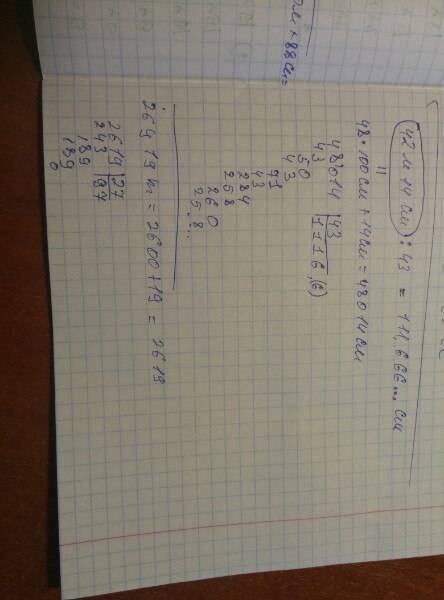 42 м 14 см : 43 = 111,666... см
||
48·100 см + 14 см = 48014 см
48014 | 43
43 1116,(6)
50
43
71
43
284
258
260
258
...
26ц 19 кг = 2600 + 19 = 2619
2619 | 27
243 97
189
189
0